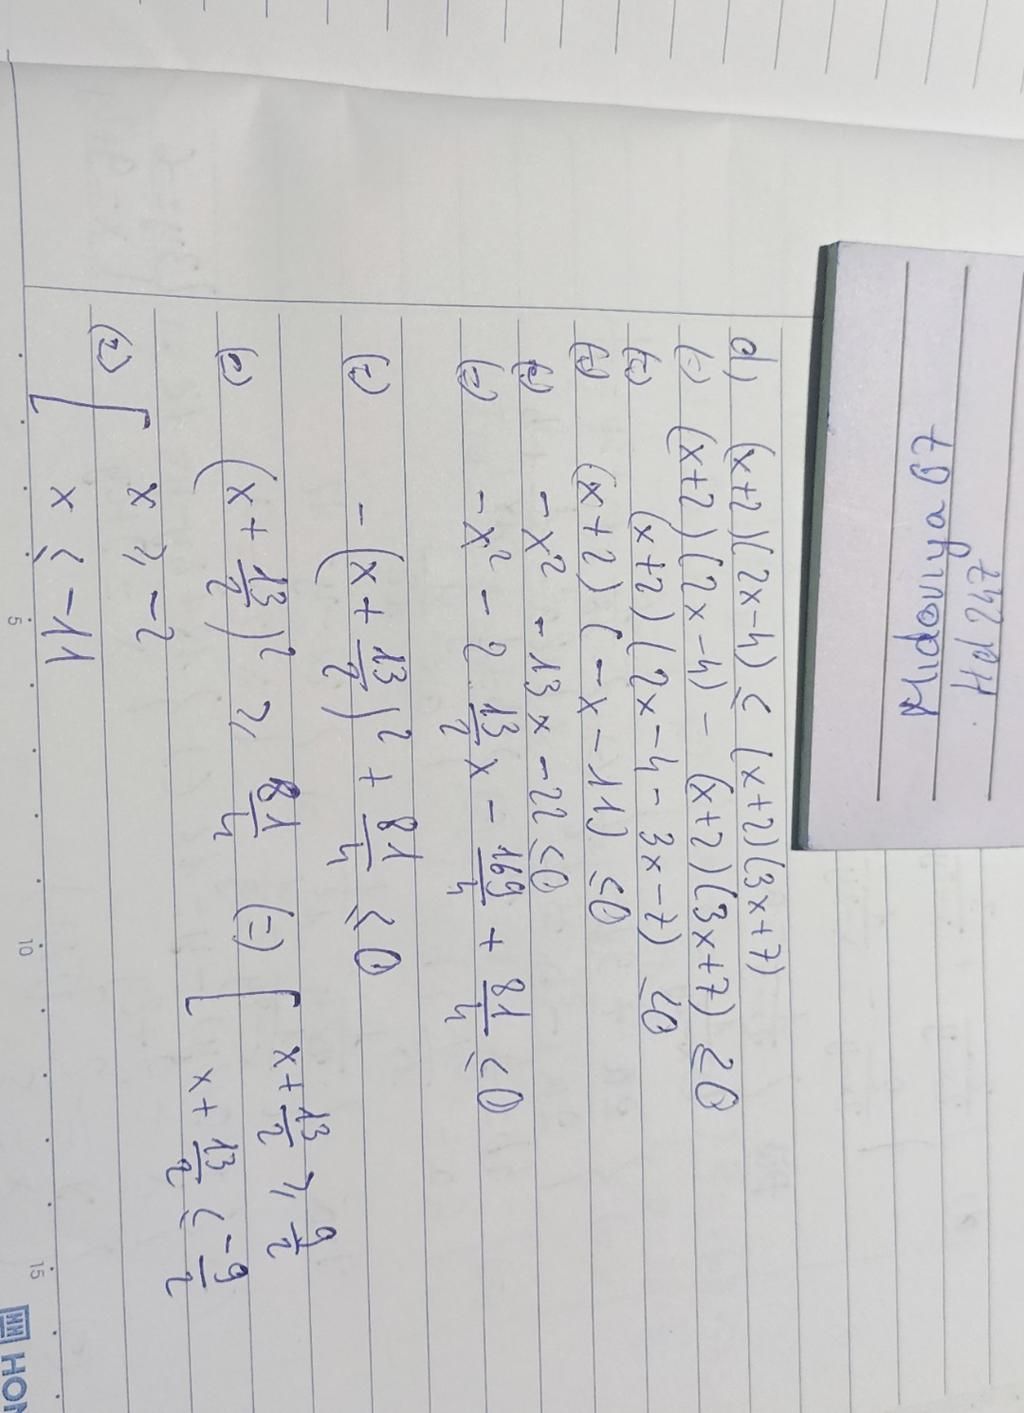 Midoviya 67
Hd 247
d) (x+2)(2x-4) ≤ (x+2)(3x+7)
(=) (x+2)(2x-4) - (x+2)(3x+7) ≤0
(=) (x+2)(2x-4-3x-7) ≤0
(=) (x+2)(-x-11) ≤0
(=) -x² -13x -22 ≤0
(=) -x² - 2 13/2 x - 169/4 + 81/4 ≤0
(=) -(x + 13/2)² + 81/4 ≤ 0
(=) (x + 13/2)² ≥ 81/4 (=) [ x + 13/2 ≥ 9/2
x + 13/2 ≤ -9/2
(=) [ x ≥ -2
x ≤ -11
5 10 15
HON